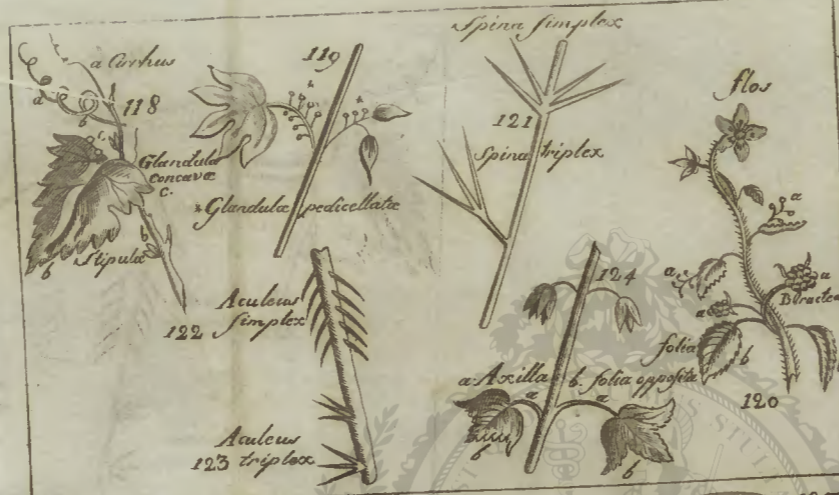 a Cirrhus
a
b
118
c.
Glandula
Concavæ
C.
b
b
Stipulæ
119
*
*
*Glandulæ pedicellatæ
Spina Simplex
121
Spina triplex
flos
a
a
a
a
Bracteæ
folia
b
120
122
Aculeus
Simplex
Aculeus
123 triplex
124
a. Axilla b. folia opposita
a
a
b
b